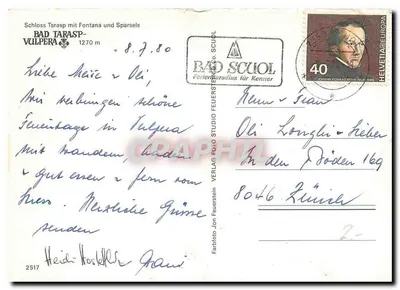 Schloss Tarasp mit Fontana und Sparsels
BAD TARASP-
VULPERA 1270 m
8.7.80
Liebe & Oli,
Wir verbringen schöne
Ferientage in Vulpera
mit wandern, baden
& gut essen & fern vom
Stress. Herzliche Grüsse
senden
Heidi
2517
Farbfoto Jon Feuerstein
VERLAG FOTO STUDIO FEUERSTEIN SCUOL
BAD SCUOL
Ferienparadies für Kenner
40
HELVETIA EUROPA
Herrn + Frau
Oli
In den Böden 169
8046 Zürich
2.-